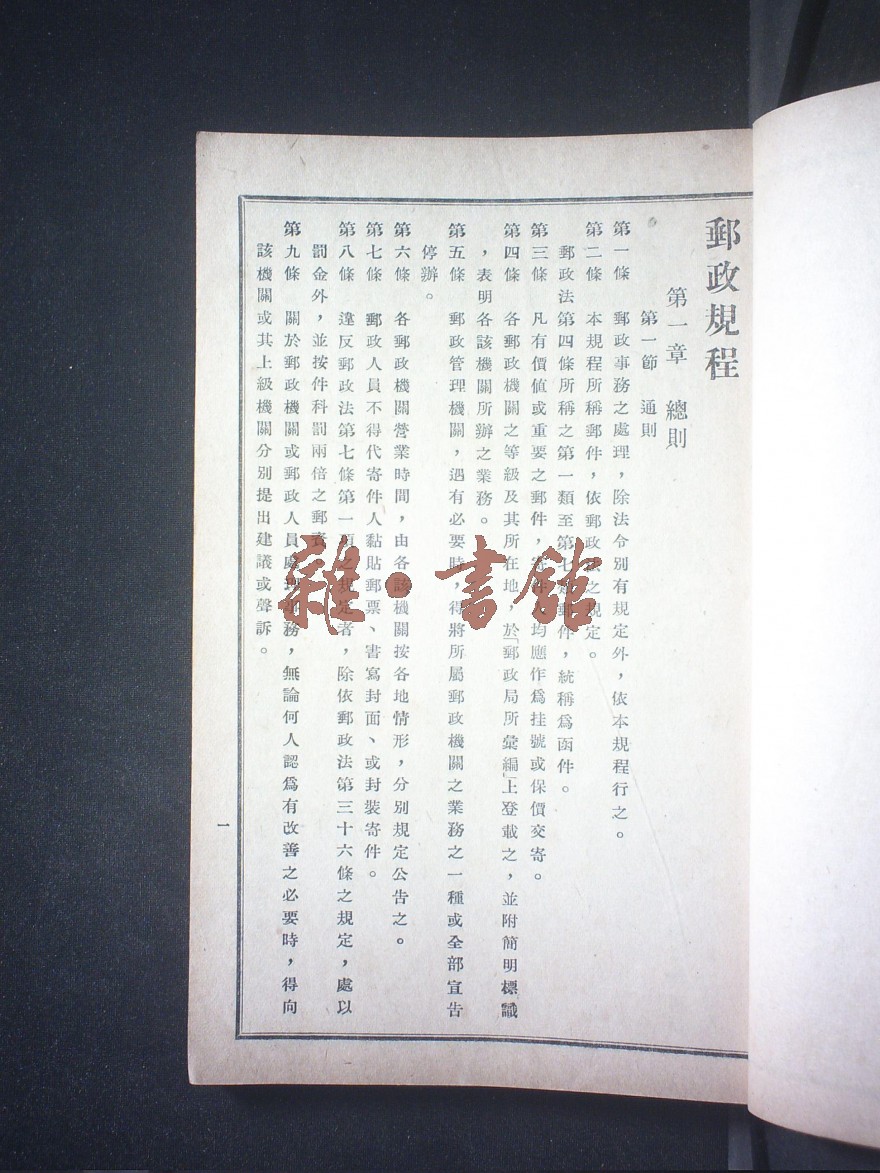 郵政規程
第一章　總則
第一節　通則
第一條　郵政事務之處理，除法令別有規定外，依本規程行之。
第二條　本規程所稱郵件，依郵政法之規定。
郵政法第四條所稱之第一類至第七類郵件，統稱爲函件。
第三條　凡有價値或重要之郵件，寄件人均應作爲挂號或保價交寄。
第四條　各郵政機關之等級及其所在地，於「郵政局所彙編」上登載之，並附簡明標識
，表明各該機關所辦之業務。
第五條　郵政管理機關，遇有必要時，得將所屬郵政機關之業務之一種或全部宣告
停辦。
第六條　各郵政機關營業時間，由各該機關按各地情形，分別規定公告之。
第七條　郵政人員不得代寄件人黏貼郵票、書寫封面、或封裝寄件。
第八條　違反郵政法第七條第一項之規定者，除依郵政法第三十六條之規定，處以
罰金外，並按件科罰兩倍之郵資。
第九條　關於郵政機關或郵政人員處理事務，無論何人認爲有改善之必要時，得向
該機關或其上級機關分別提出建議或聲訴。
一
雜·書館